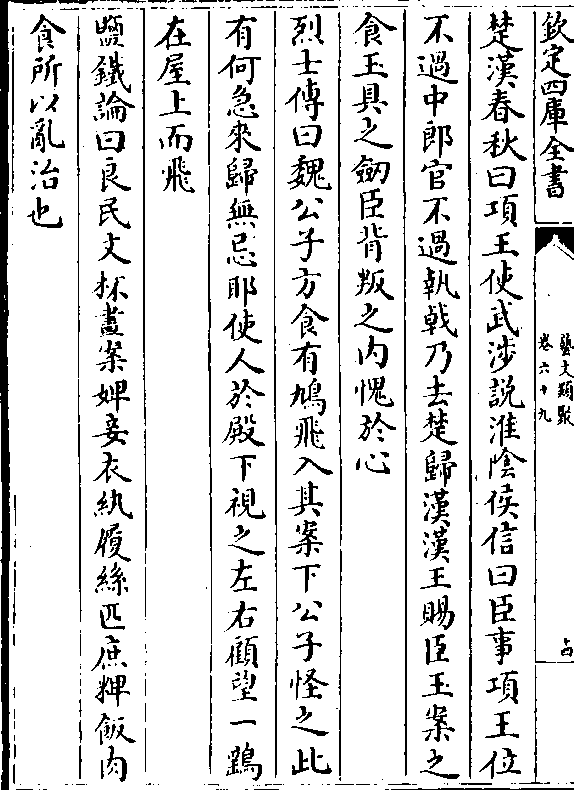 欽定四庫全書
藝文類聚
卷六十九
楚漢春秋曰項王使武涉說淮陰侯信曰臣事項王位
不過中郎官不過執戟乃去楚歸漢漢王賜臣玉案之
食玉具之劒臣背叛之内愧於心
烈士傳曰魏公子方食有鳩飛入其案下公子怪之此
有何急來歸無忌耶使人於殿下視之左右顧望一鷂
在屋上而飛
鹽鐵論曰良民文杯畫案婢妾衣紈履絲匹庶粺飯肉
食所以亂治也